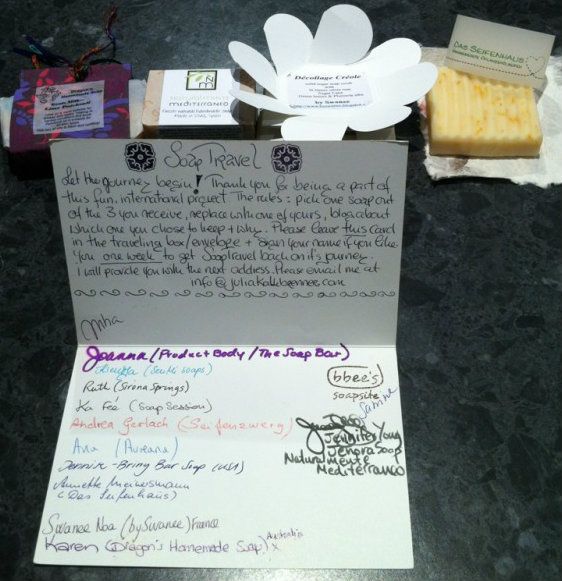 Dragon's Homemade Soap
NM
mediterraneo
Décollage Créole
by Swanee
DAS SEIFENHAUS
SoapTravel
Let the journey begin! Thank you for being a part of
this fun, international project. The rules: pick one soap out
of the 3 you receive, replace with one of yours, blog about
which one you chose to keep + why. Please leave this card
in the traveling box/envelope + sign your name if you like.
You one week to get SoapTravel back on it's journey.
I will provide you with the next address. Please email me at
info@juliakalkbrenner.com
Joanna (Product Body / The Soap Bar)
Ruth (Sirona Springs)
bbee's
soapsite
Sabine
Ka Feé (Soap Session)
Andrea Gerlach (Seifenzwerg)
Jennifer Young
Jenora Soap
Ana (Aureana)
Naturalmente
Mediterraneo
Jennifer - Bring Bar Soap (USA)
Annette
(Das Seifenhaus)
Swanee Noa (by Swanee) France
Karen (Dragon's Homemade Soap) Australia
x